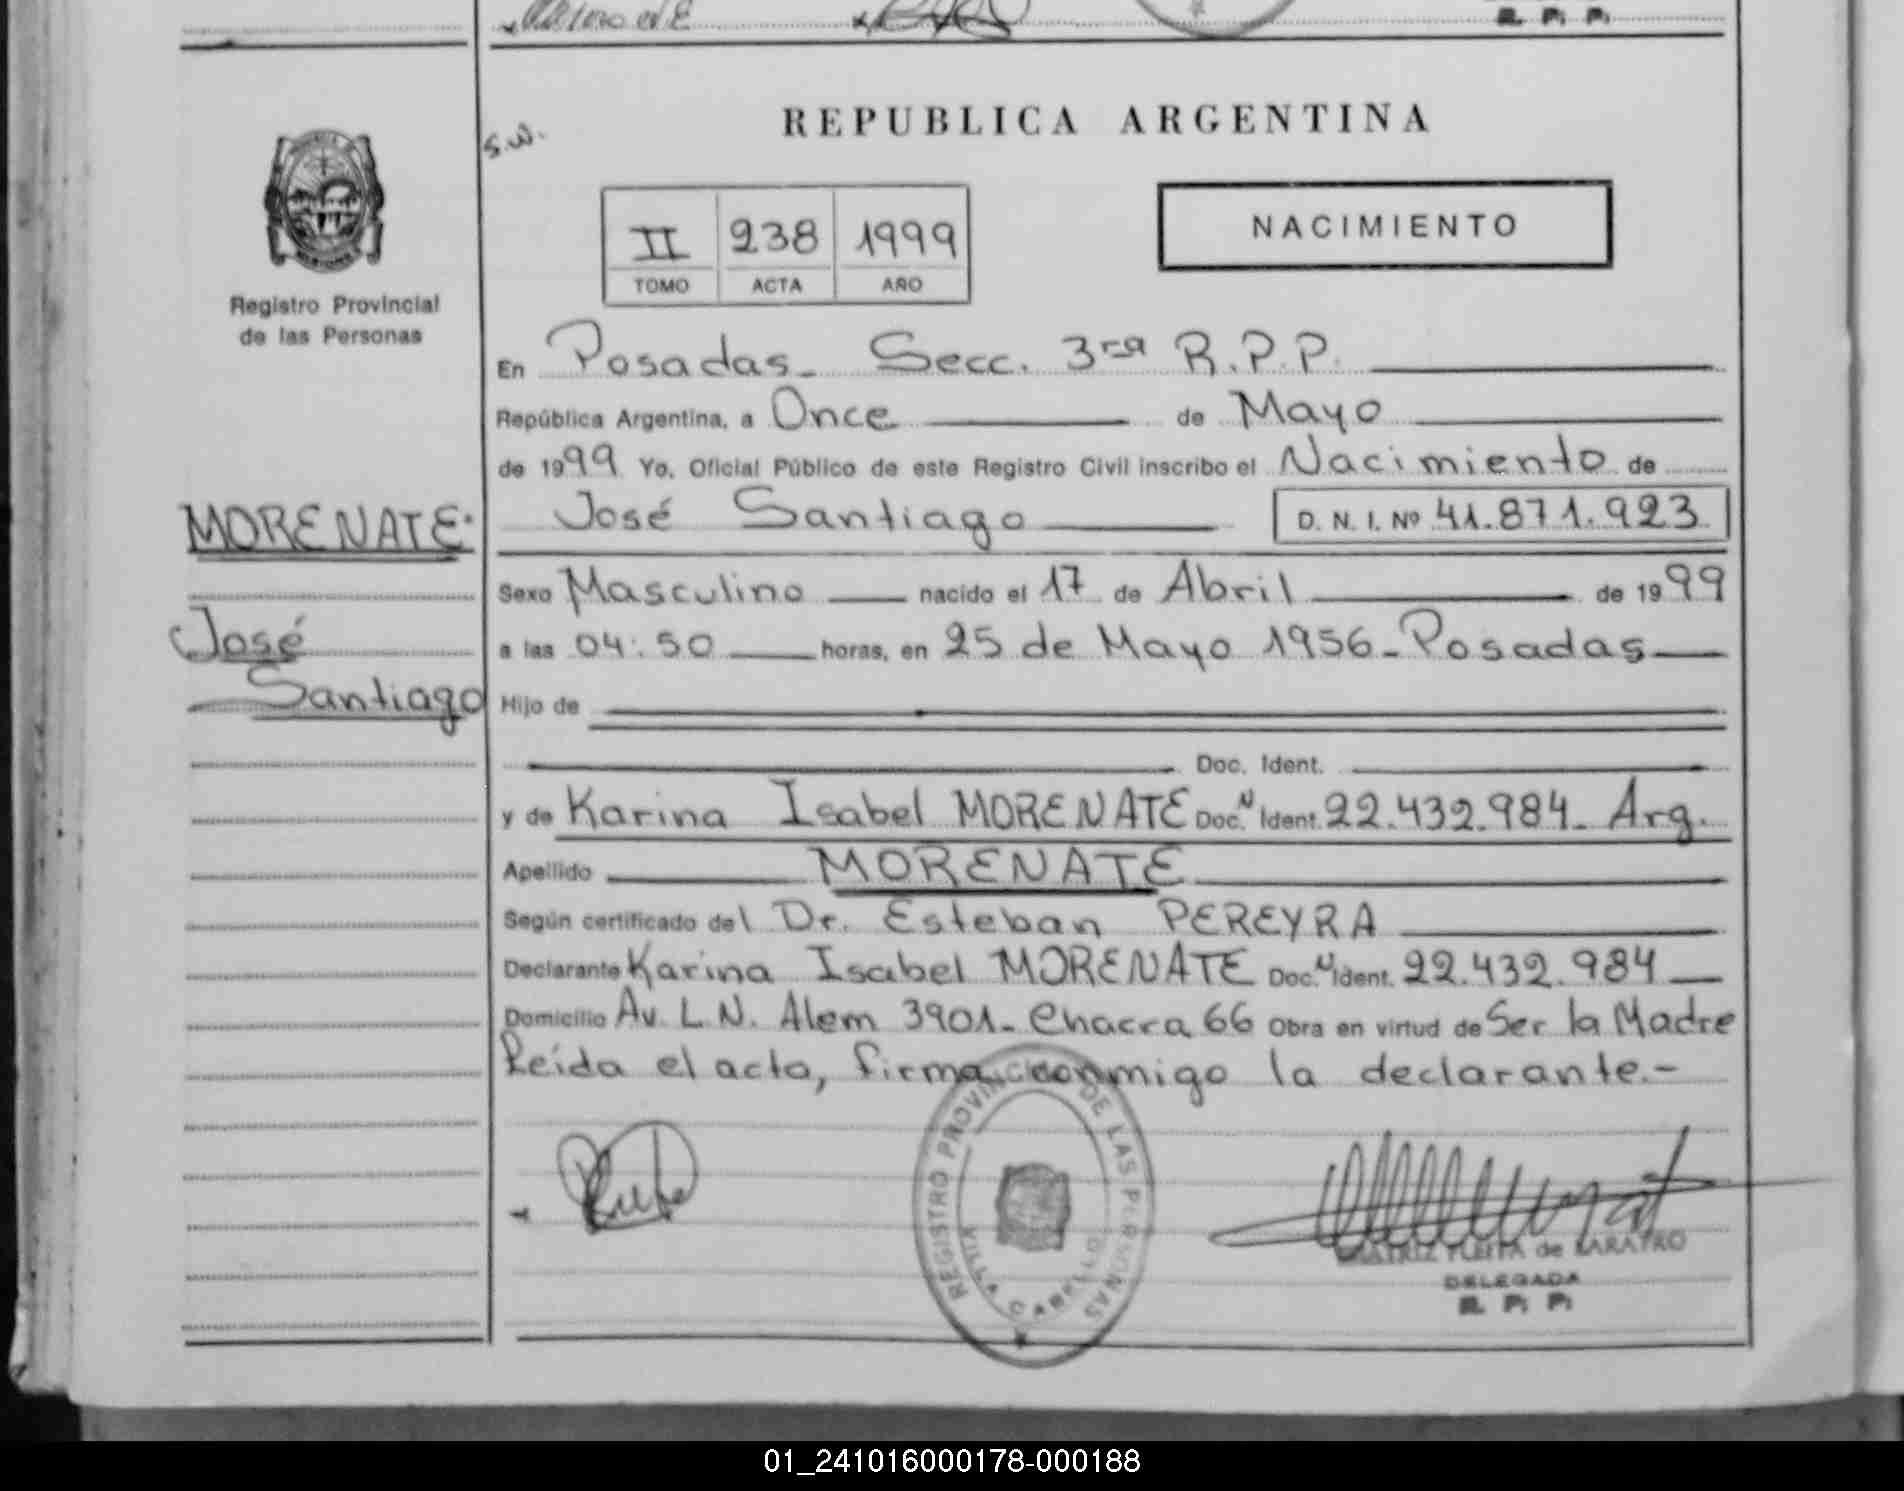 R. P. P.
REPUBLICA ARGENTINA
S.W.
NACIMIENTO
II 238 1999
TOMO ACTA AÑO
Registro Provincial
de las Personas
En Posadas - Secc. 3ra R.P.P.
República Argentina, a Once de Mayo
de 1999 Yo, Oficial Público de este Registro Civil inscribo el Nacimiento de
José Santiago D. N. I. Nº 41.871.923
MORENATE
José
Santiago
Sexo Masculino nacido el 17 de Abril de 1999
a las 04:50 horas, en 25 de Mayo 1956 - Posadas
Hijo de
Doc. Ident.
y de Karina Isabel MORENATE Doc. N Ident. 22.432.984 - Arg.
Apellido MORENATE
Según certificado del Dr. Esteban PEREYRA
Declarante Karina Isabel MORENATE Doc. N Ident. 22.432.984
Domicilio Av. L. N. Alem 3901 - Chacra 66 Obra en virtud de Ser la Madre
Leída el acta, firma conmigo la declarante.-
REGISTRO PROVINCIAL DE LAS PERSONAS
VILLA CABELLO
de
DELEGADA
R. P. P.
01_241016000178-000188